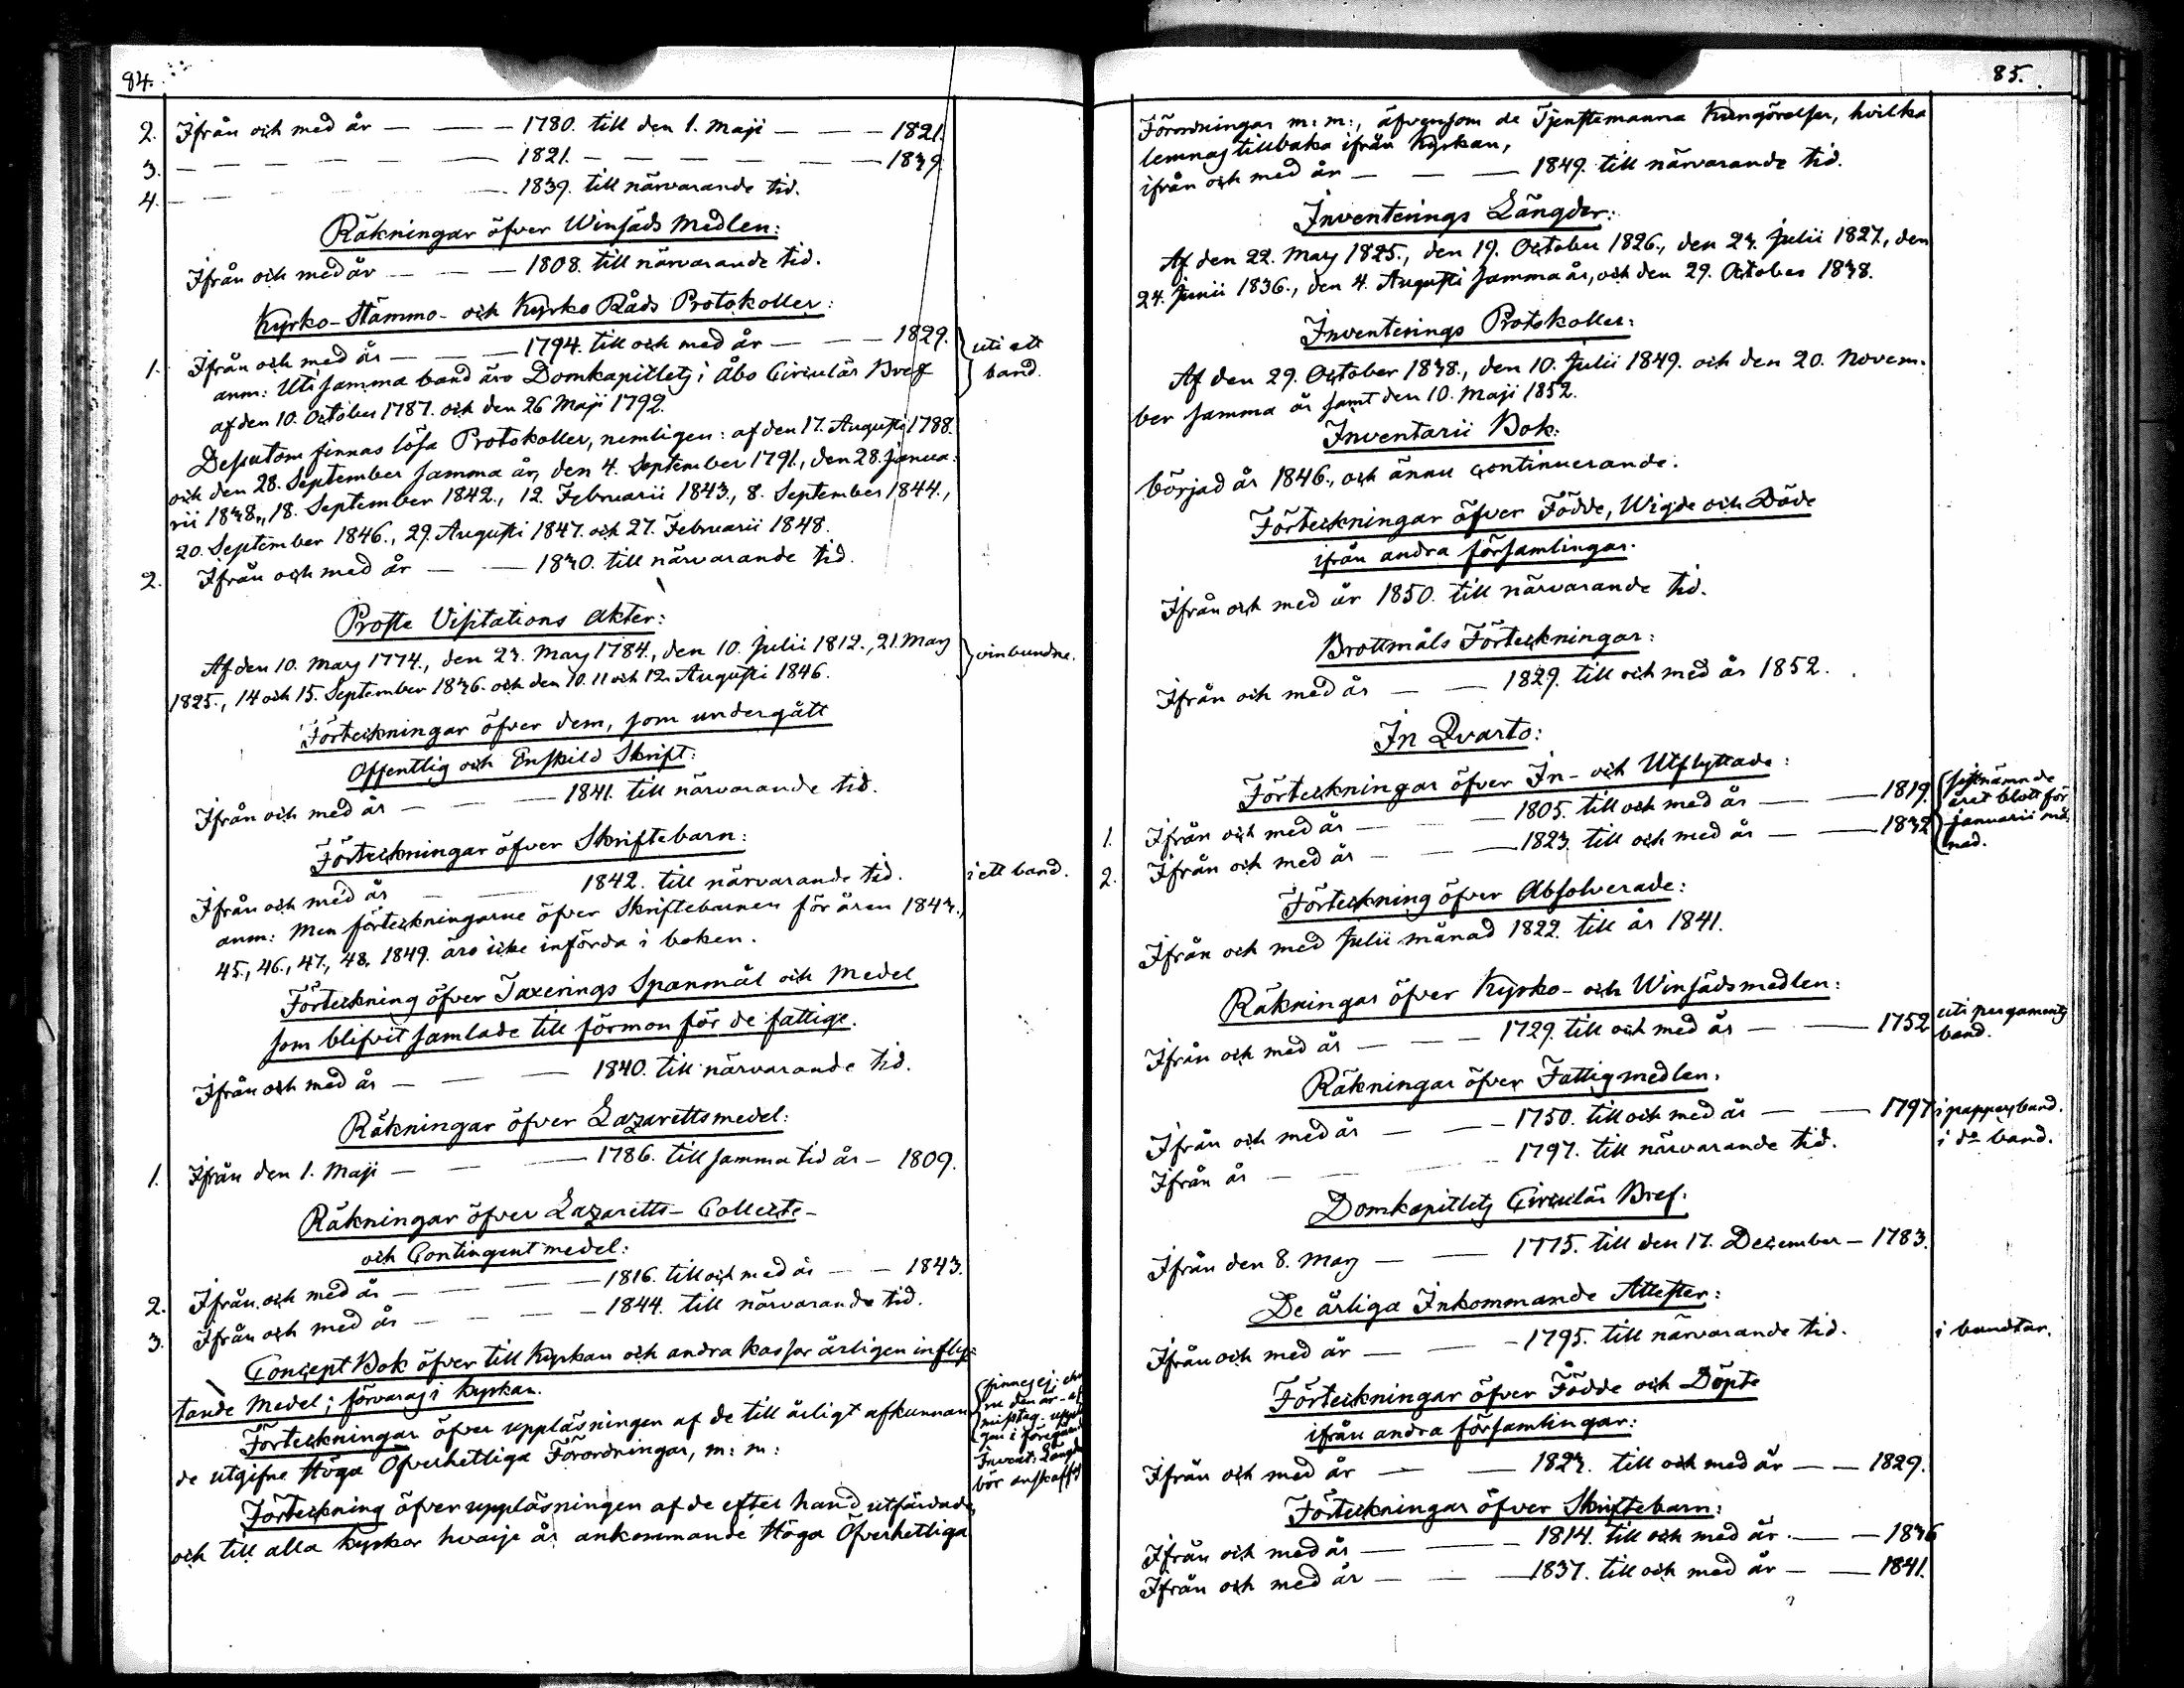 84.
2. Ifrån och med år — — — 1780. till den 1. Maji — — — 1821.
3. — — — — — — 1821. — — — — — — 1839.
4. — — — — — 1839. till närvarande tid.
Räkningar öfver Winsäds Medlen:
Ifrån och med år — — — 1808. till närvarande tid.
Kyrko-Stämmo- och Kyrko Råds Protokoller:
1. Ifrån och med år — — — 1794. till och med år — — — 1829. uti ett
anm: Uti samma band äro Domkapitlets i Åbo Circulär Bref band.
af den 10. October 1787. och den 26 Maji 1792.
Dessutom finnas lösa Protokoller, nemligen: af den 17. Augusti 1788.
och den 28. September samma år, den 4. September 1791., den 28. Janua-
rii 1838., 18. September 1842., 12. Februarii 1843., 8. September 1844.,
20. September 1846., 29. Augusti 1847. och 27. Februarii 1848.
2. Ifrån och med år — — 1830. till närvarande tid.
Proste Visitations Akter:
Af den 10. Mars 1774., den 23. Mars 1784., den 10. Julii 1812., 21. Mars oinbundne.
1825., 14 och 15. September 1836. och den 10. 11 och 12. Augusti 1846.
Förteckningar öfver dem, som undergått
Offentlig och Enskild Skrift:
Ifrån och med år — — — 1841. till närvarande tid.
Förteckningar öfver Skriftebarn:
Ifrån och med år — — 1842. till närvarande tid. i ett band.
anm: Men förteckningarne öfver Skriftebarnen för åren 1843.,
45., 46., 47., 48. 1849. äro icke införda i boken.
Förteckning öfver Taxerings Spanmål och Medel
som blifvit samlade till förmon för de fattige.
Ifrån och med år — — — 1840. till närvarande tid.
Räkningar öfver Lazarettsmedel:
1. Ifrån den 1. Maji — — — 1786. till samma tid år — 1809.
Räkningar öfver Lazaretts- Collecte-
och Contingent medel:
2. Ifrån och med år — — — 1816. till och med år — — 1843.
3. Ifrån och med år — — — 1844. till närvarande tid.
Concept Bok öfver till Kyrkan och andra kassor årligen infly-
tande Medel; förvaras i kyrkan.
Förteckningar öfver uppläsningen af de till årligt afkunnan-
de utgifne Höga Öfverhetliga Förordningar, m: m:
Förteckning öfver uppläsningen af de efter hand utfärdade,
och till alla kyrkor hvarje år ankommande Höga Öfverhetliga
finnes ej;
den är
misstag
i
Invent:
bör
85.
Förordningar m: m:, äfvensom de Tjenstemanna Kungörelser, hvilka
lemnas tillbaka ifrån Kyrkan,
ifrån och med år — — — 1849. till närvarande tid.
Inventerings Längder:
Af den 22. Mars 1825., den 19. October 1826., den 23. Julii 1827., den
24. Junii 1836., den 4. Augusti samma år, och den 29. October 1838.
Inventerings Protokoller:
Af den 29. October 1838., den 10. Julii 1849. och den 20. Novem-
ber samma år samt den 10. Maji 1852.
Inventarii Bok:
börjad år 1846., och ännu continuerande.
Förteckningar öfver Födde, Wigde och Döde
ifrån andra församlingar.
Ifrån och med år 1850. till närvarande tid.
Brottmåls Förteckningar:
Ifrån och med år — — 1829. till och med år 1852.
In Qvarto:
Förteckningar öfver In- och Utflyttade:
1. Ifrån och med år — — 1805. till och med år — — 1819. sistnämnde
året blott för
2. Ifrån och med år — — 1823. till och med år — — 1832 Januarii må-
nad.
Förteckning öfver Absolverade:
Ifrån och med Julii månad 1822. till år 1841.
Räkningar öfver Kyrko- och Winsädsmedlen:
Ifrån och med år — — — 1729. till och med år — — 1752 uti pergaments
band.
Räkningar öfver Fattigmedlen.
Ifrån och med år — — — 1750. till och med år — — 1797 i pappersband.
Ifrån år — — — 1797. till närvarande tid. i do band.
Domkapitlets Circulär Bref.
Ifrån den 8. Mars — — 1775. till den 17. December — 1783.
De årliga Inkommande Attester:
Ifrån och med år — — — 1795. till närvarande tid. i bandtar.
Förteckningar öfver Födde och Döpte
ifrån andra församlingar:
Ifrån och med år — — 1823. till och med år — — 1829.
Förteckningar öfver Skriftebarn:
Ifrån och med år — — — 1814. till och med år — — 1836
Ifrån och med år — — — 1837. till och med år — — 1841.